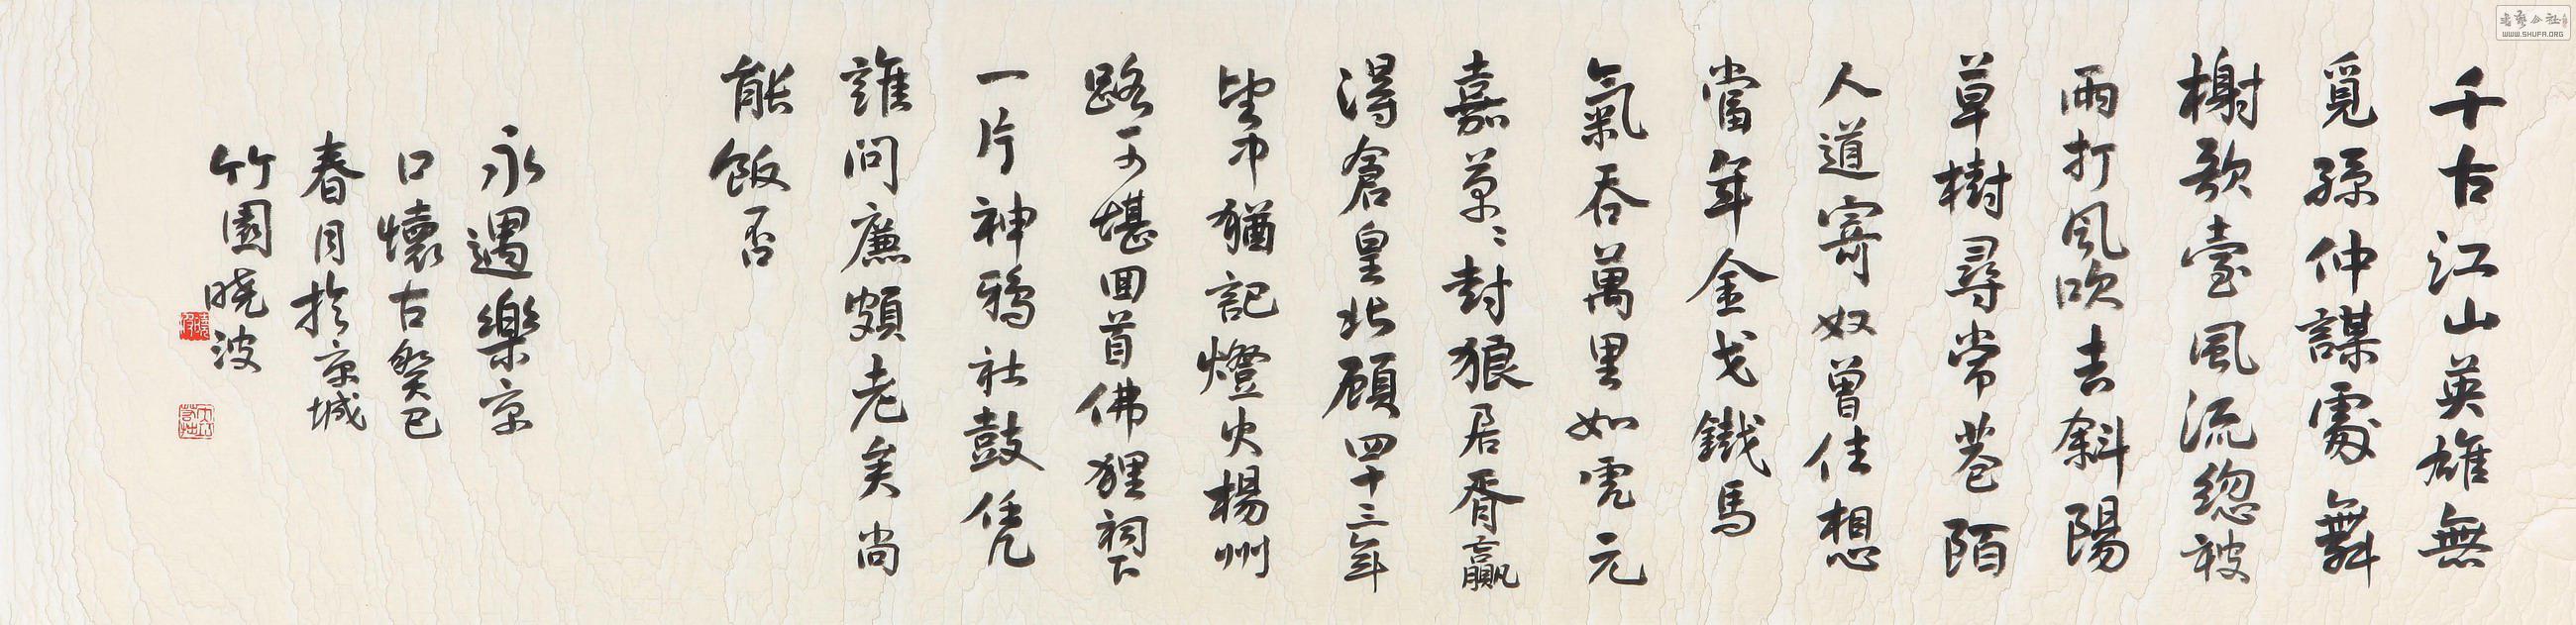 千古江山英雄無
覓孫仲謀處舞
榭歌臺風流總被
雨打風吹去斜陽
草樹尋常巷陌
人道寄奴曾住想
當年金戈鐵馬
氣吞萬里如虎元
嘉草〻封狼居胥贏
得倉皇北顧四十三年
望中猶記燈火楊州
路可堪回首佛狸祠下
一片神鴉社鼓凭
誰問廉頗老矣尚
能飯否
永遇樂京
口懷古癸巳
春月於京城
竹園曉波
WWW.SHUFA.ORG